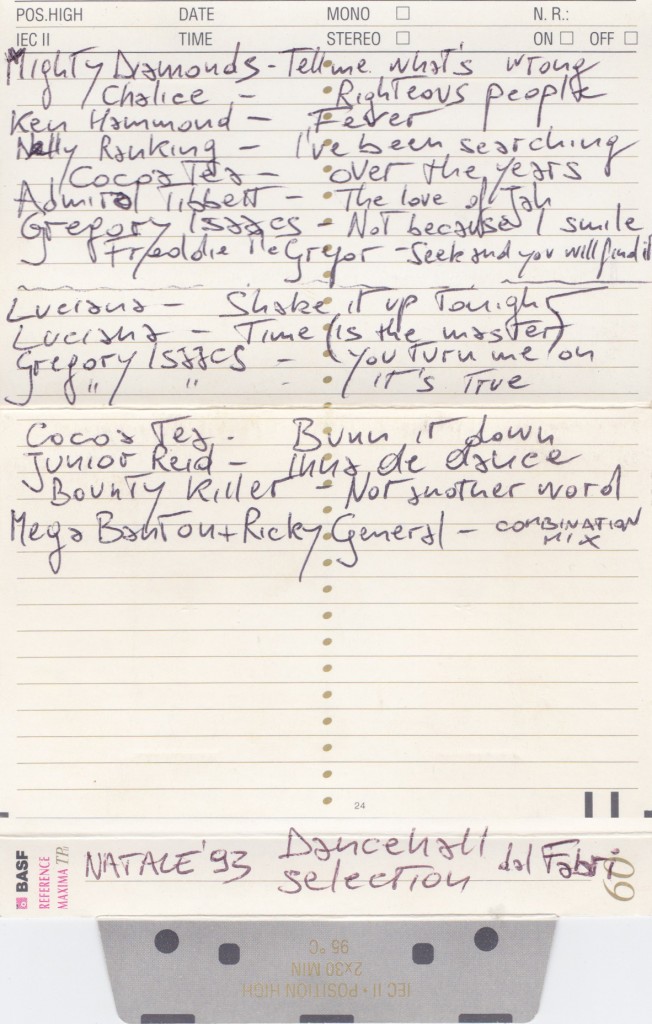 POS.HIGH DATE MONO N. R.:
IEC II TIME STEREO ON OFF
Mighty Diamonds - Tell me what's wrong
Chalice - Righteous people
Ken Hammond - Fever
Nelly Ranking - I've been searching
Cocoa Tea - over the years
Admiral Tibbett - The love of Jah
Gregory Isaacs - Not because I smile
Freddie McGregor - Seek and you will find it
Luciana - Shake it up Tonight
Luciana - Time (is the master)
Gregory Isaacs - you turn me on
" " - it's True
Cocoa Tea - Bunn it down
Junior Reid - inna de dance
Bounty Killer - Not another word
Mega Banton + Ricky General - COMBINATION
MIX
24
BASF
REFERENCE
MAXIMA TP II
NATALE '93 Dancehall selection dal Fabri
60
IEC II • POSITION HIGH
2x30 MIN
95 °C